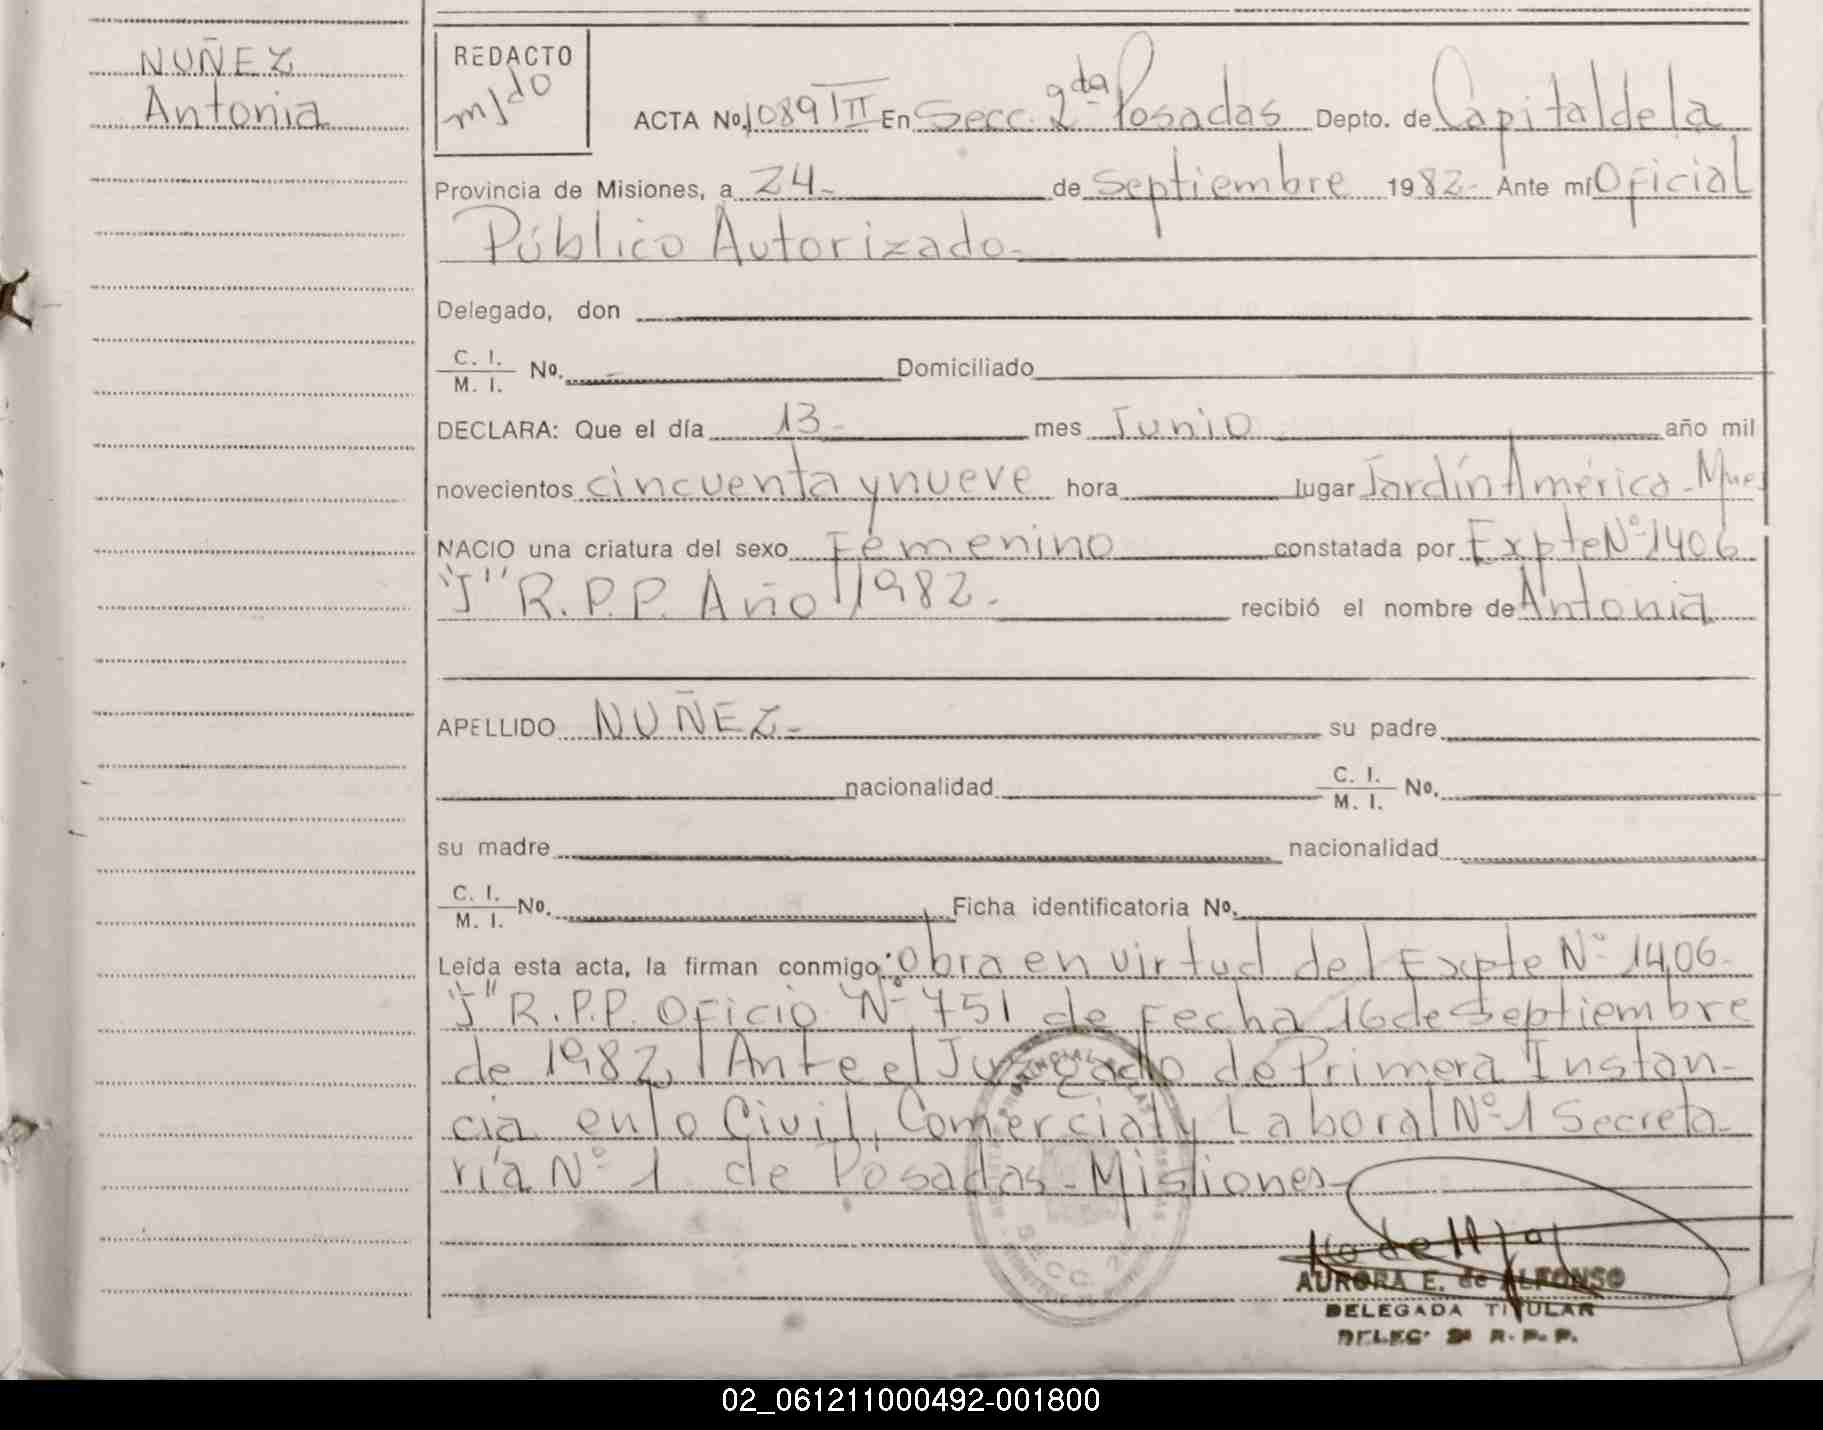 NUÑEZ
Antonia
REDACTO
ACTA No. 1089 III En Secc. 2da Posadas Depto. de Capital de la
Provincia de Misiones, a 24- de Septiembre 1982- Ante mí Oficial
Público Autorizado-
Delegado, don
C. I.
M. I. No. Domiciliado
DECLARA: Que el día 13- mes Junio año mil
novecientos cincuenta y nueve hora lugar Jardín América-
NACIO una criatura del sexo Femenino constatada por Expte Nº 1406
"J" R.P.P. Año 1982- recibió el nombre de Antonia
APELLIDO NUÑEZ- su padre
nacionalidad C. I.
M. I. No.
su madre nacionalidad
C. I.
M. I. No. Ficha identificatoria No.
Leída esta acta, la firman conmigo: Obra en virtud del Expte Nº 1406-
"J" R.P.P. Oficio Nº 751 de Fecha 16 de Septiembre
de 1982, Ante el Juzgado de Primera Instan-
cia en lo Civil, Comercial y Laboral Nº 1 Secreta-
ría Nº 1 de Posadas- Misiones-
AURORA E. de ALFONSO
DELEGADA TITULAR
DELEG. 2ª R. P. P.
02_061211000492-001800